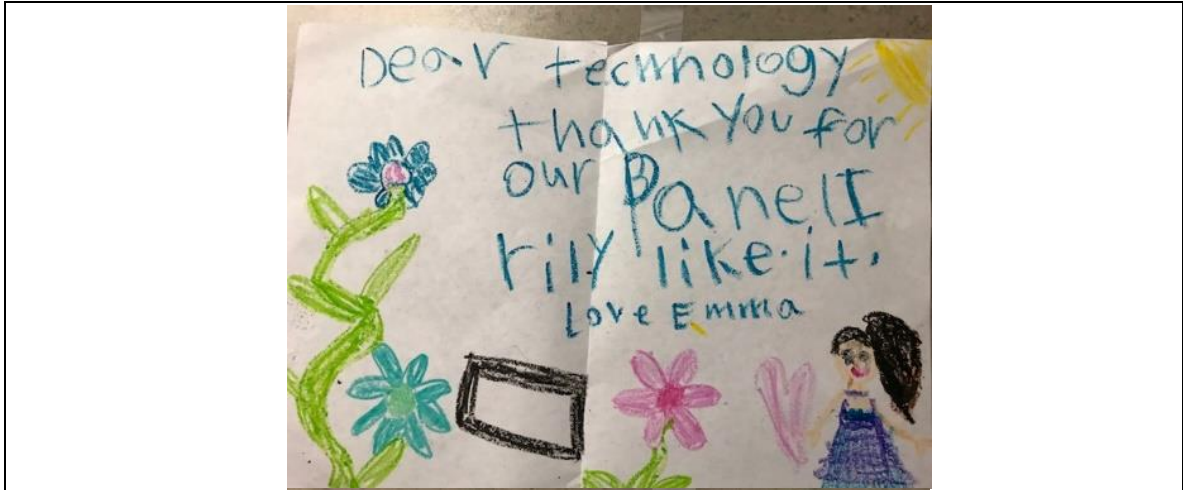 Dear technology
thank you for
our PanelI
rily like.it.
Love Emma